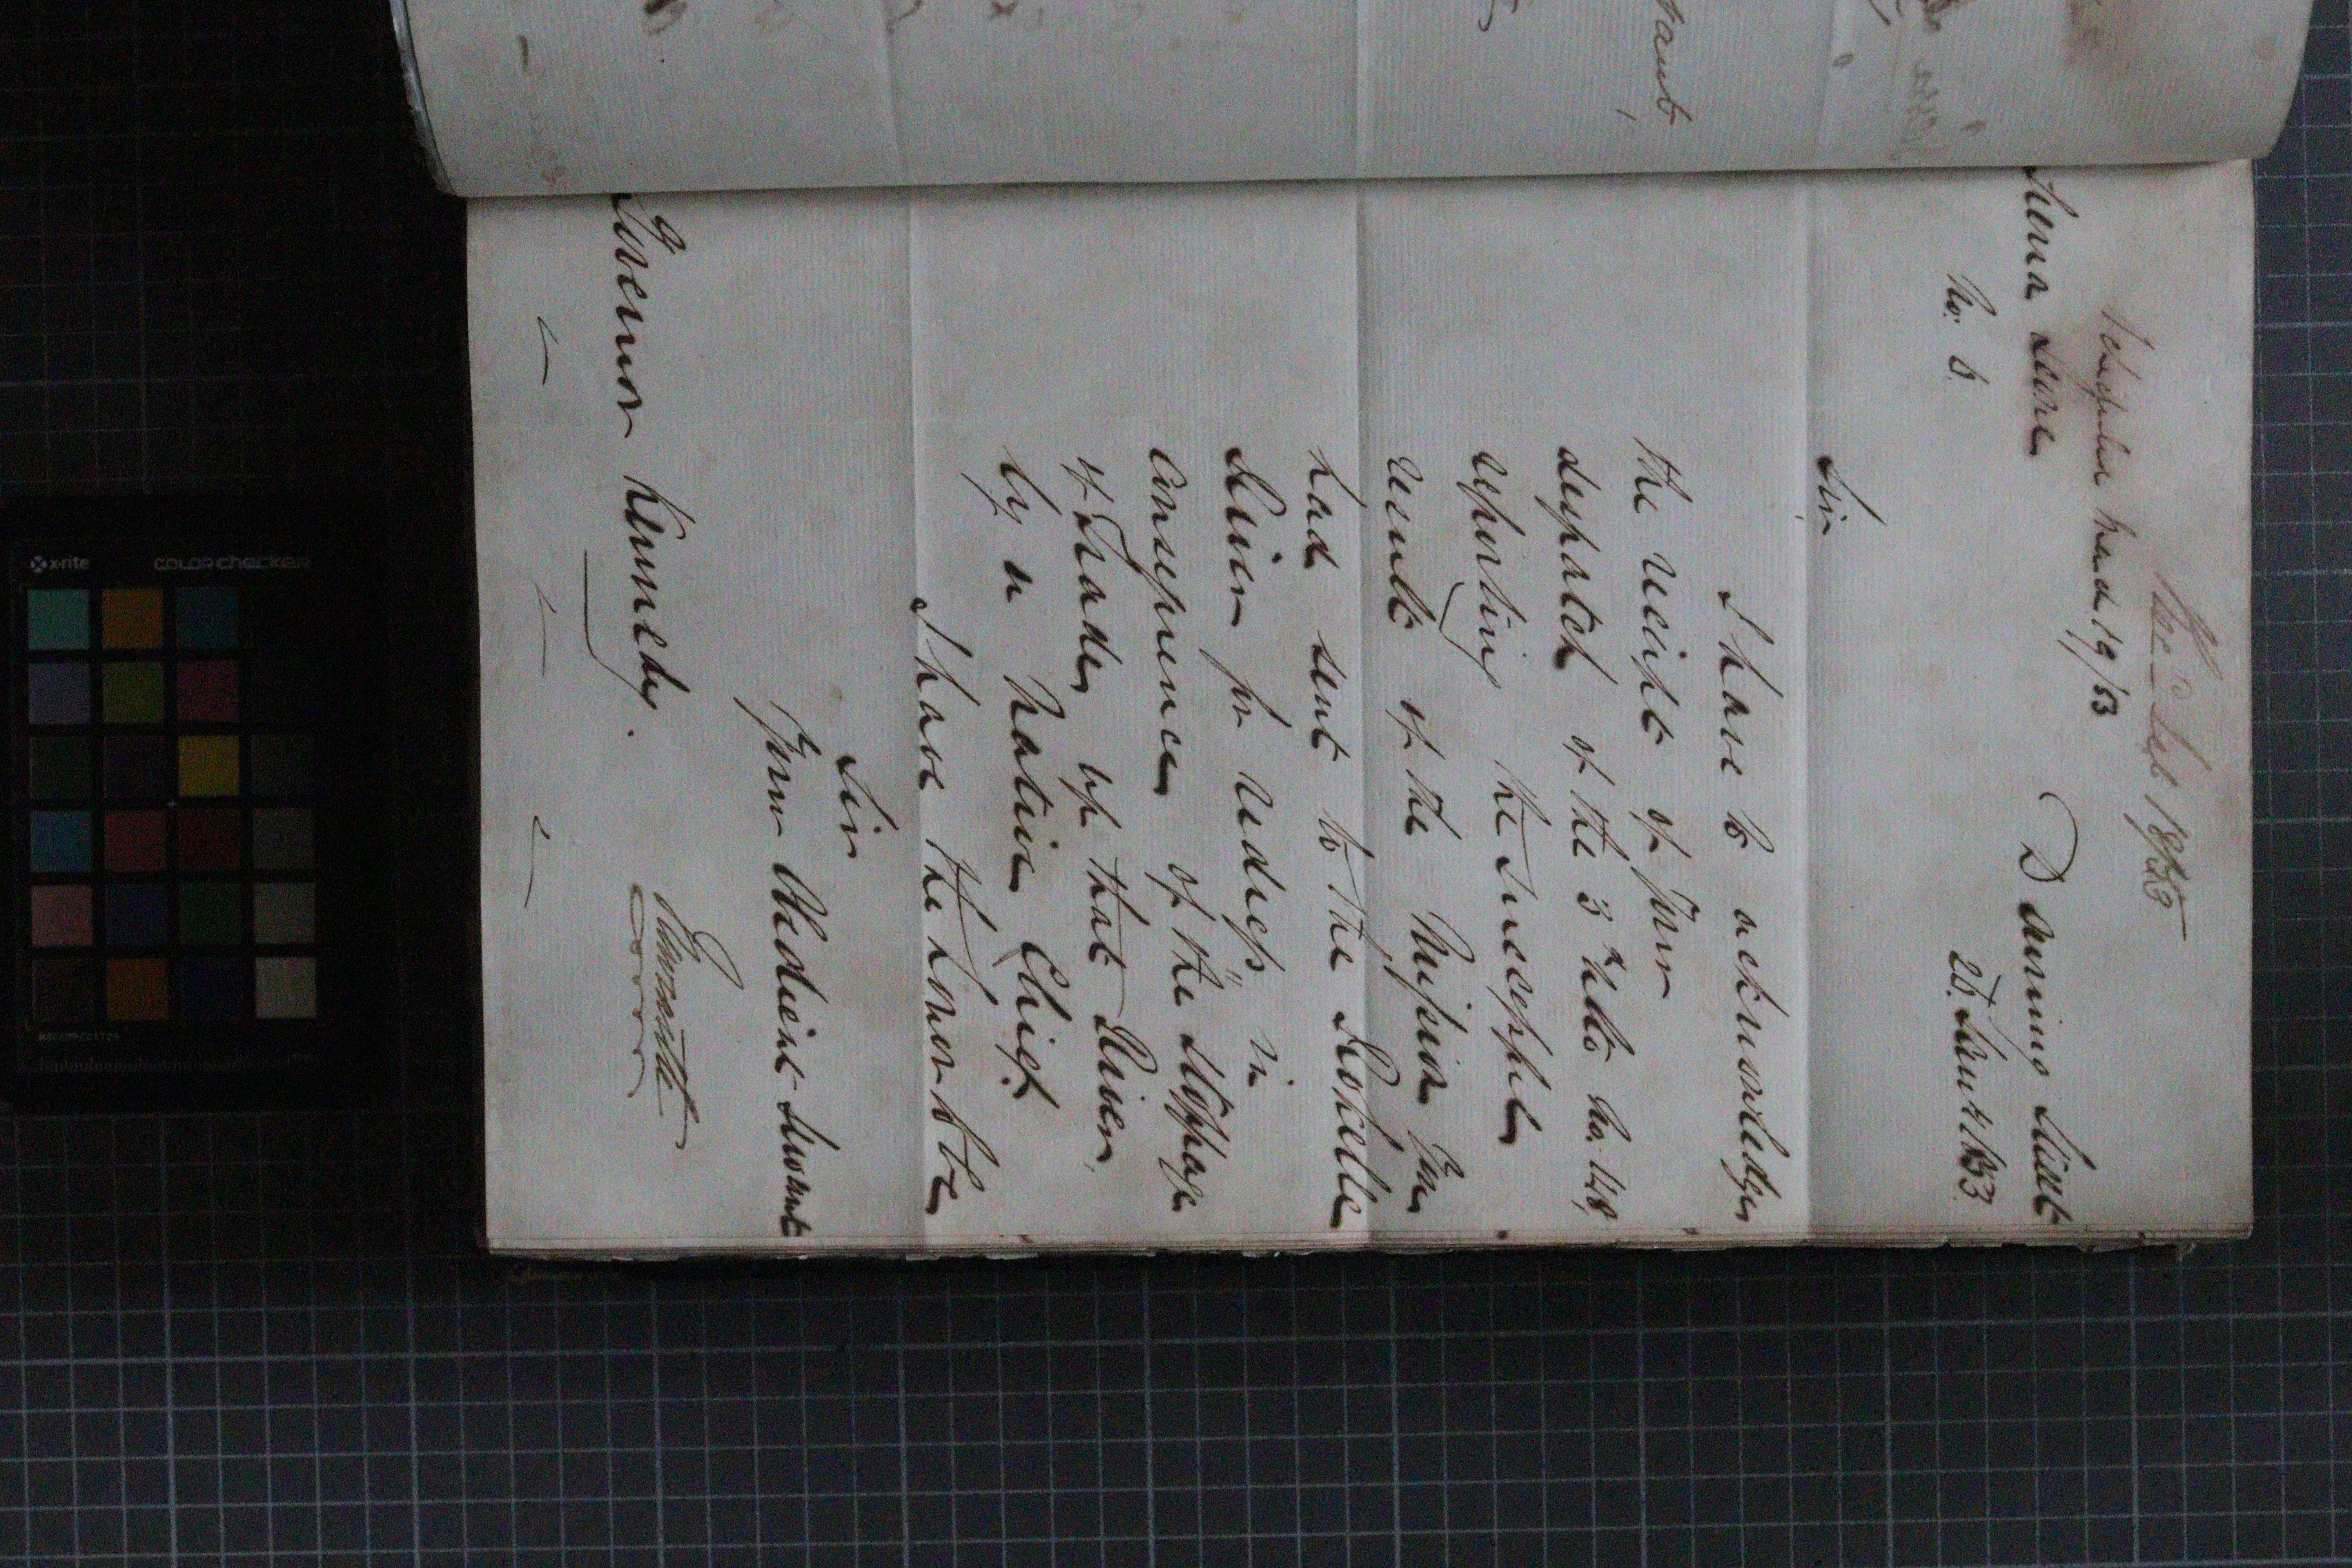 Rec.d Feb 18/53
Schedule March 19/53
Sierra Leone
Downing Street
No. 6.
25 Jany 1853
Sir
I have to acknowledge
the receipt of your
despatch of the 3rd Ulto No. 148,
reporting the successful
result of the Mission you
had sent to the Rokelle
River for redress in
consequence of the stoppage
of Trade up that River
by a Native Chief.
I have the honor to be
Sir
Your Obedient Servant
Newcastle
Governor Kennedy.
x-rite
colorchecker